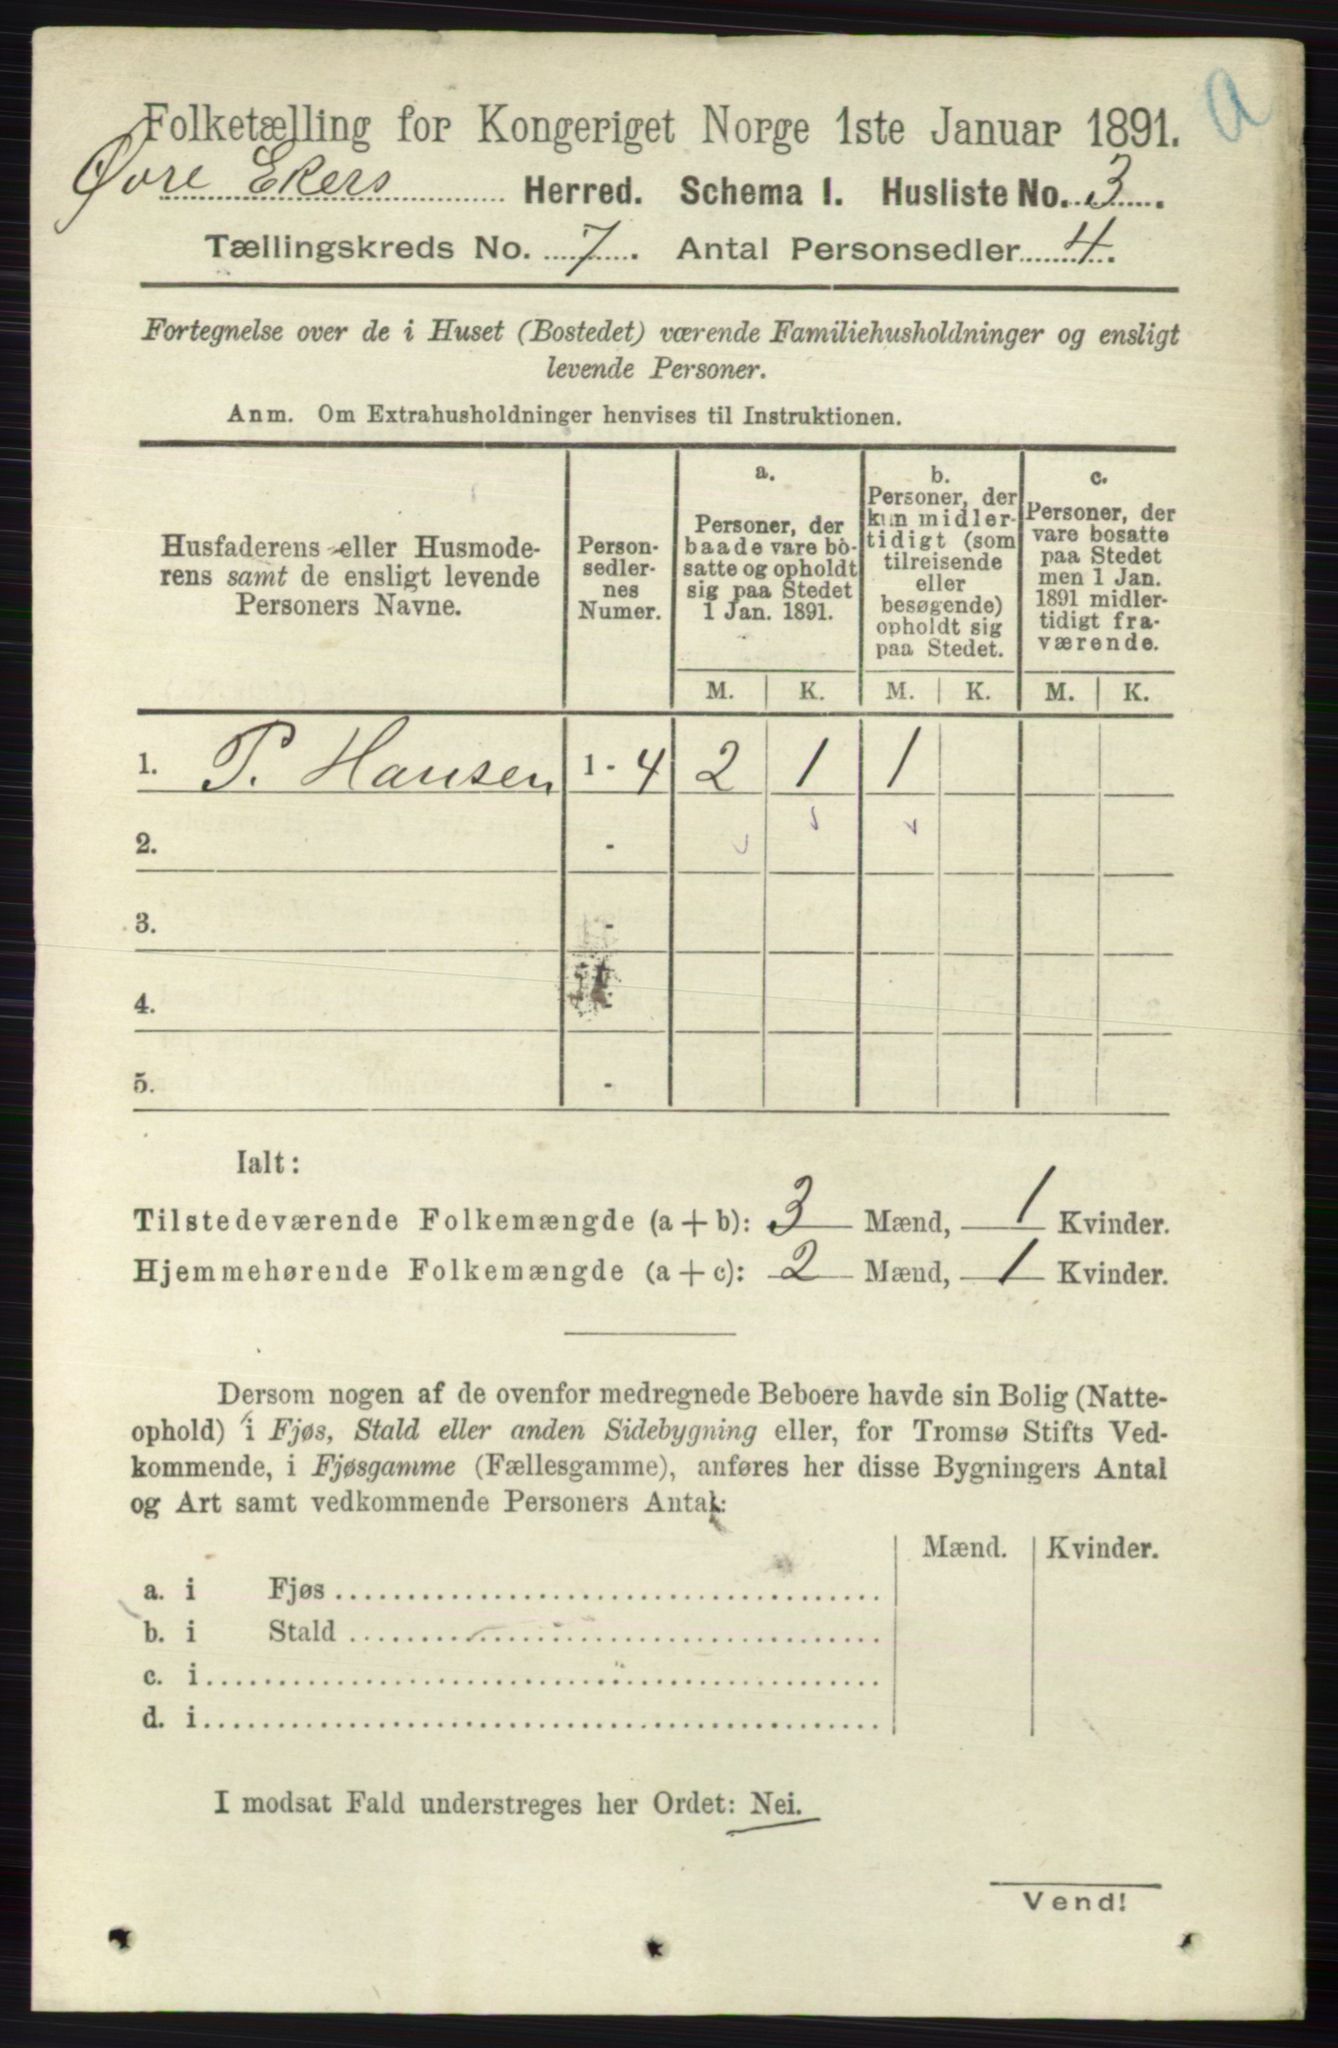 a
Folketælling for Kongeriget Norge 1ste Januar 1891.
Øvre Ekers Herred. Schema I. Husliste No. 3.
Tællingskreds No. 7. Antal Personsedler 4.
Fortegnelse over de i Huset (Bostedet) værende Familiehusholdninger og ensligt
levende Personer.
Anm. Om Extrahusholdninger henvises til Instruktionen.
Husfaderens eller Husmode-
rens samt de ensligt levende
Personers Navne.
Person-
sedler-
nes
Numer.
a.
Personer, der
baade vare bo-
satte og opholdt
sig paa Stedet
1 Jan. 1891.
b.
Personer, der
kun midler-
tidigt (som
tilreisende
eller
besøgende)
opholdt sig
paa Stedet.
c.
Personer, der
vare bosatte
paa Stedet
men 1 Jan.
1891 midler-
tidigt fra-
værende.
M. K. M. K. M. K.
1. P. Hansen 1 - 4 2 1 1
2. -
3. -
4. -
5. -
Ialt:
Tilstedeværende Folkemængde (a + b): 3 Mænd, 1 Kvinder.
Hjemmehørende Folkemængde (a + c): 2 Mænd, 1 Kvinder.
Dersom nogen af de ovenfor medregnede Beboere havde sin Bolig (Natte-
ophold) i Fjøs, Stald eller anden Sidebygning eller, for Tromsø Stifts Ved-
kommende, i Fjøsgamme (Fællesgamme), anføres her disse Bygningers Antal
og Art samt vedkommende Personers Antal:
Mænd. Kvinder.
a. i Fjøs
b. i Stald
c. i
d. i
I modsat Fald understreges her Ordet: Nei.
Vend!